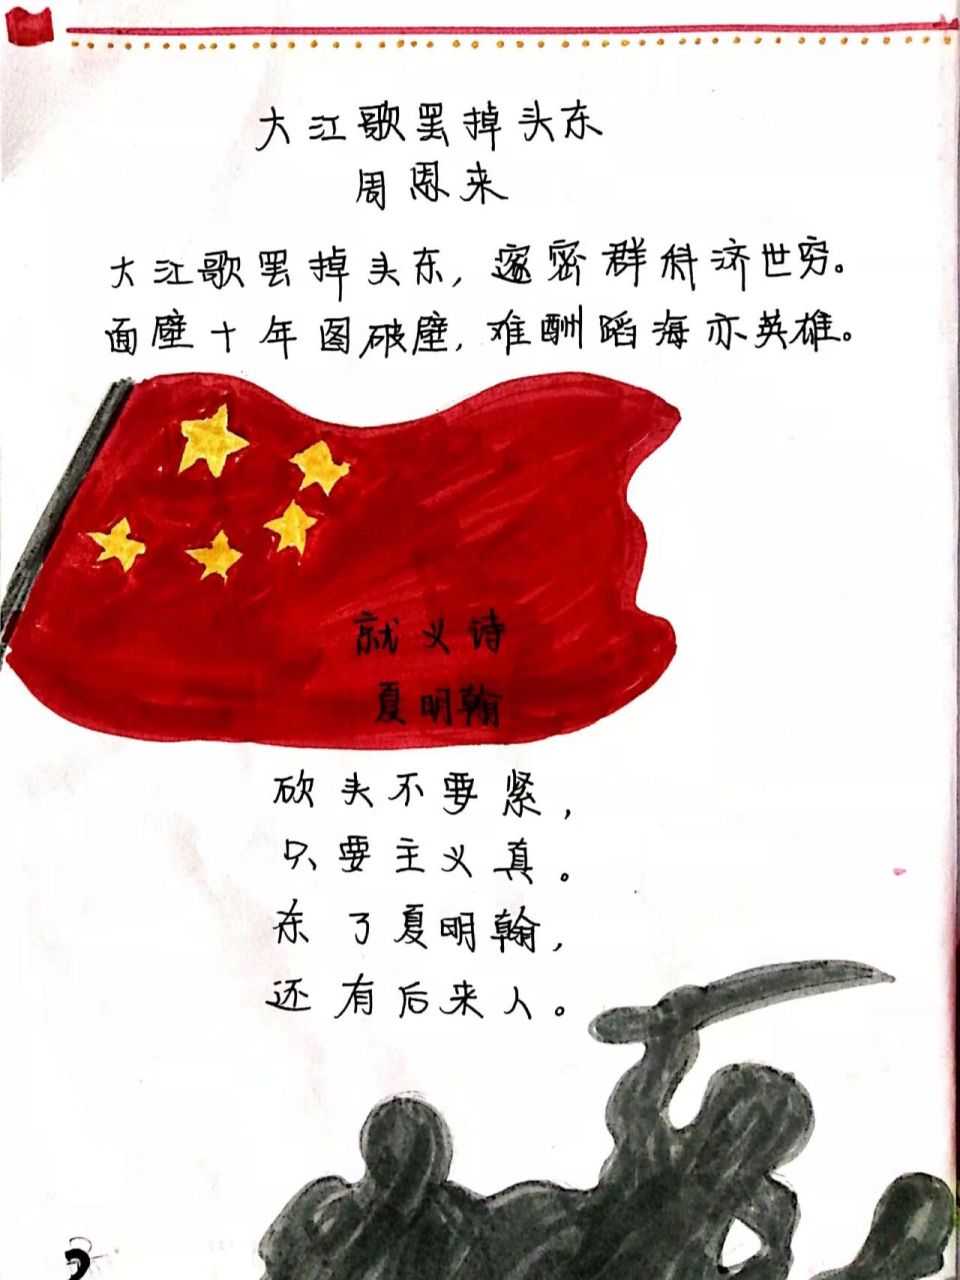 大江歌罢掉头东
周恩来
大江歌罢掉头东,邃密群科济世穷。
面壁十年图破壁,难酬蹈海亦英雄。
就义诗
夏明翰
砍头不要紧,
只要主义真。
杀了夏明翰,
还有后来人。